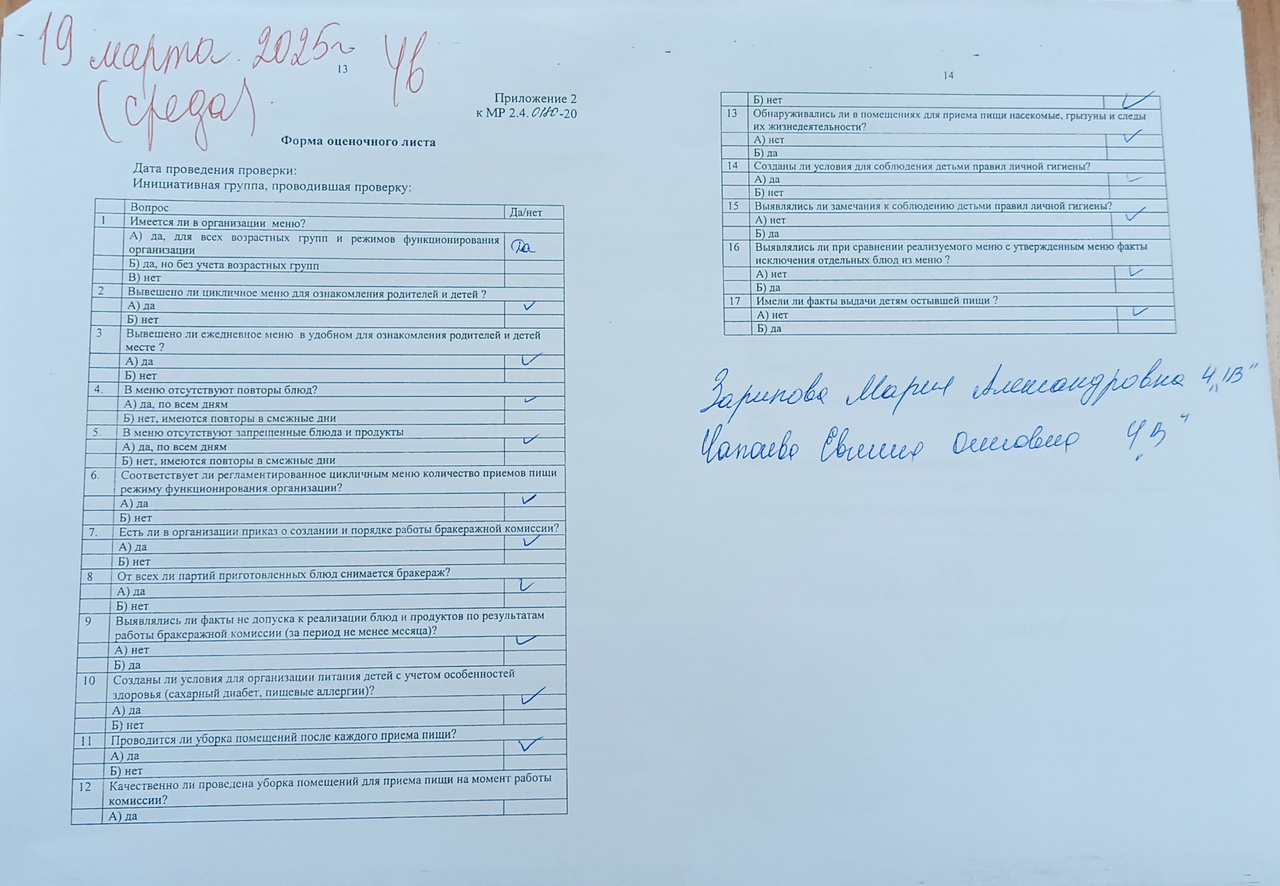 19 марта 2025г 4в
(среда)
13
Приложение 2
к МР 2.4.0180-20
Форма оценочного листа
Дата проведения проверки:
Инициативная группа, проводившая проверку:
Вопрос Да/нет
1 Имеется ли в организации меню?
А) да, для всех возрастных групп и режимов функционирования
организации Да
Б) да, но без учета возрастных групп
В) нет
2 Вывешено ли цикличное меню для ознакомления родителей и детей ?
А) да ✓
Б) нет
3 Вывешено ли ежедневное меню в удобном для ознакомления родителей и детей
месте ?
А) да ✓
Б) нет
4. В меню отсутствуют повторы блюд?
А) да, по всем дням ✓
Б) нет, имеются повторы в смежные дни
5. В меню отсутствуют запрещенные блюда и продукты
А) да, по всем дням ✓
Б) нет, имеются повторы в смежные дни
6. Соответствует ли регламентированное цикличным меню количество приемов пищи
режиму функционирования организации?
А) да ✓
Б) нет
7. Есть ли в организации приказ о создании и порядке работы бракеражной комиссии?
А) да ✓
Б) нет
8 От всех ли партий приготовленных блюд снимается бракераж?
А) да ✓
Б) нет
9 Выявлялись ли факты не допуска к реализации блюд и продуктов по результатам
работы бракеражной комиссии (за период не менее месяца)?
А) нет ✓
Б) да
10 Созданы ли условия для организации питания детей с учетом особенностей
здоровья (сахарный диабет, пищевые аллергии)?
А) да ✓
Б) нет
11 Проводится ли уборка помещений после каждого приема пищи?
А) да ✓
Б) нет
12 Качественно ли проведена уборка помещений для приема пищи на момент работы
комиссии?
А) да
14
Б) нет ✓
13 Обнаруживались ли в помещениях для приема пищи насекомые, грызуны и следы
их жизнедеятельности?
А) нет ✓
Б) да
14 Созданы ли условия для соблюдения детьми правил личной гигиены?
А) да ✓
Б) нет
15 Выявлялись ли замечания к соблюдению детьми правил личной гигиены?
А) нет ✓
Б) да
16 Выявлялись ли при сравнении реализуемого меню с утвержденным меню факты
исключения отдельных блюд из меню ?
А) нет ✓
Б) да
17 Имели ли факты выдачи детям остывшей пищи ?
А) нет ✓
Б) да
Зарипова Мария Александровна 4 „В"
4 „В"